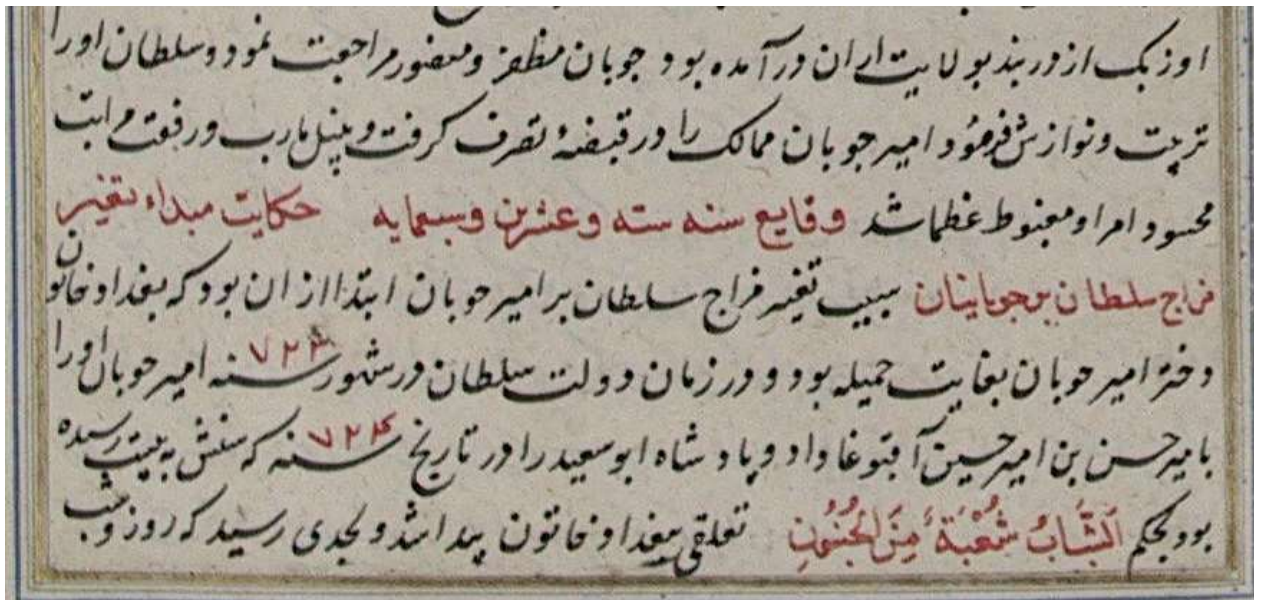 اوزبک از دربند بولایت اران درآمده بود جوبان مظفر و منصور مراجعت نمود و سلطان اورا
تربیت و نوازش فرمود امیر جوبان ممالک را در قبضهٔ تصرف کرفت و بنیل مارب و رفعت مراتب
محسود امرا و مغبوط عظما شد وقایع سنه سته و عشرین و سبعمایه حکایت مبداء تغیر
مزاج سلطان بر جوبانیان سبب تغیر مزاج سلطان بر امیر جوبان ابتدا از ان بود که بغداد خاتون
دختر امیر جوبان بغایت جمیله بود و در زمان دولت سلطان در شهور سنه ۷۲۳ امیر جوبان اورا
بامیر حسن بن امیر حسین آقبوغا داد و پادشاه ابوسعید را در تاریخ سنه ۷۲۴ که سنش به بیست رسیده
بود بحکم اَلشَّبَابُ شُعْبَةٌ مِنَ الْجُنُونِ تعلقی ببغداد خاتون پیدا شد و بحدی رسید که روز و شب